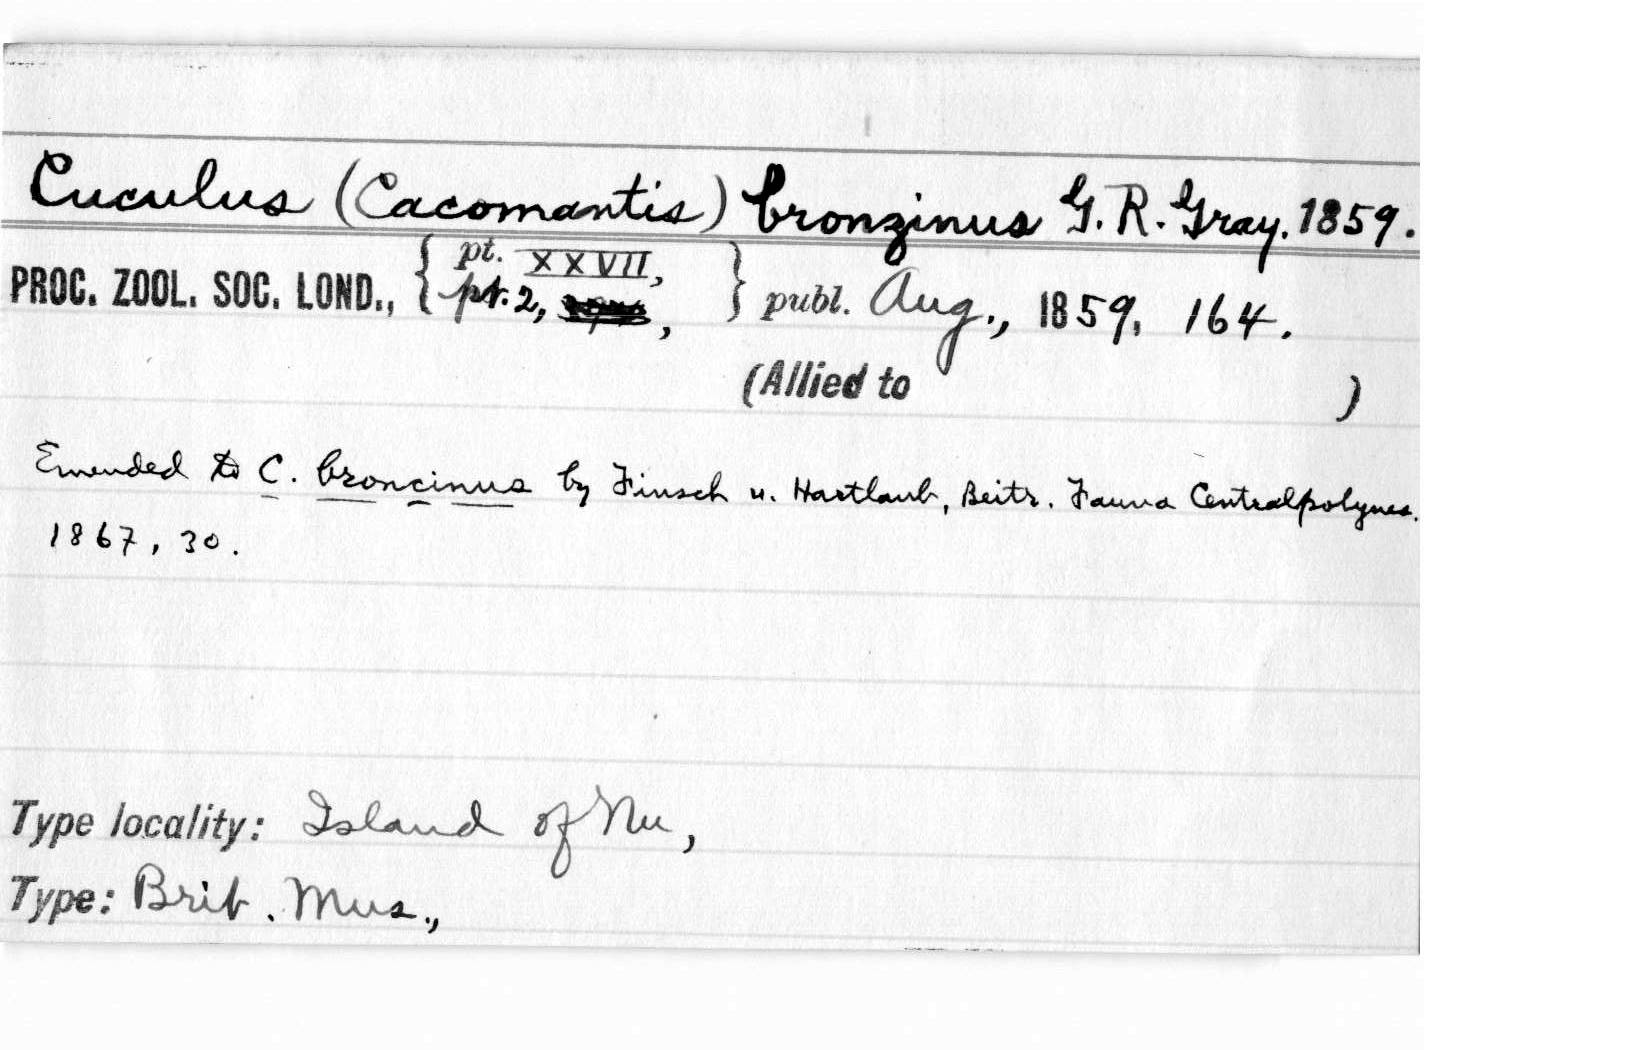 Cuculus (Cacomantis) bronzinus G. R. Gray. 1859.
PROC. ZOOL. SOC. LOND., { pt. XXVII, pt. 2, , } publ. Aug., 1859, 164.
(Allied to )
Emended to C. broncinus by Finsch u. Hartlaub, Beitr. Fauna Centralpolynes.
1867, 30.
Type locality: Island of Nu,
Type: Brit. Mus.,